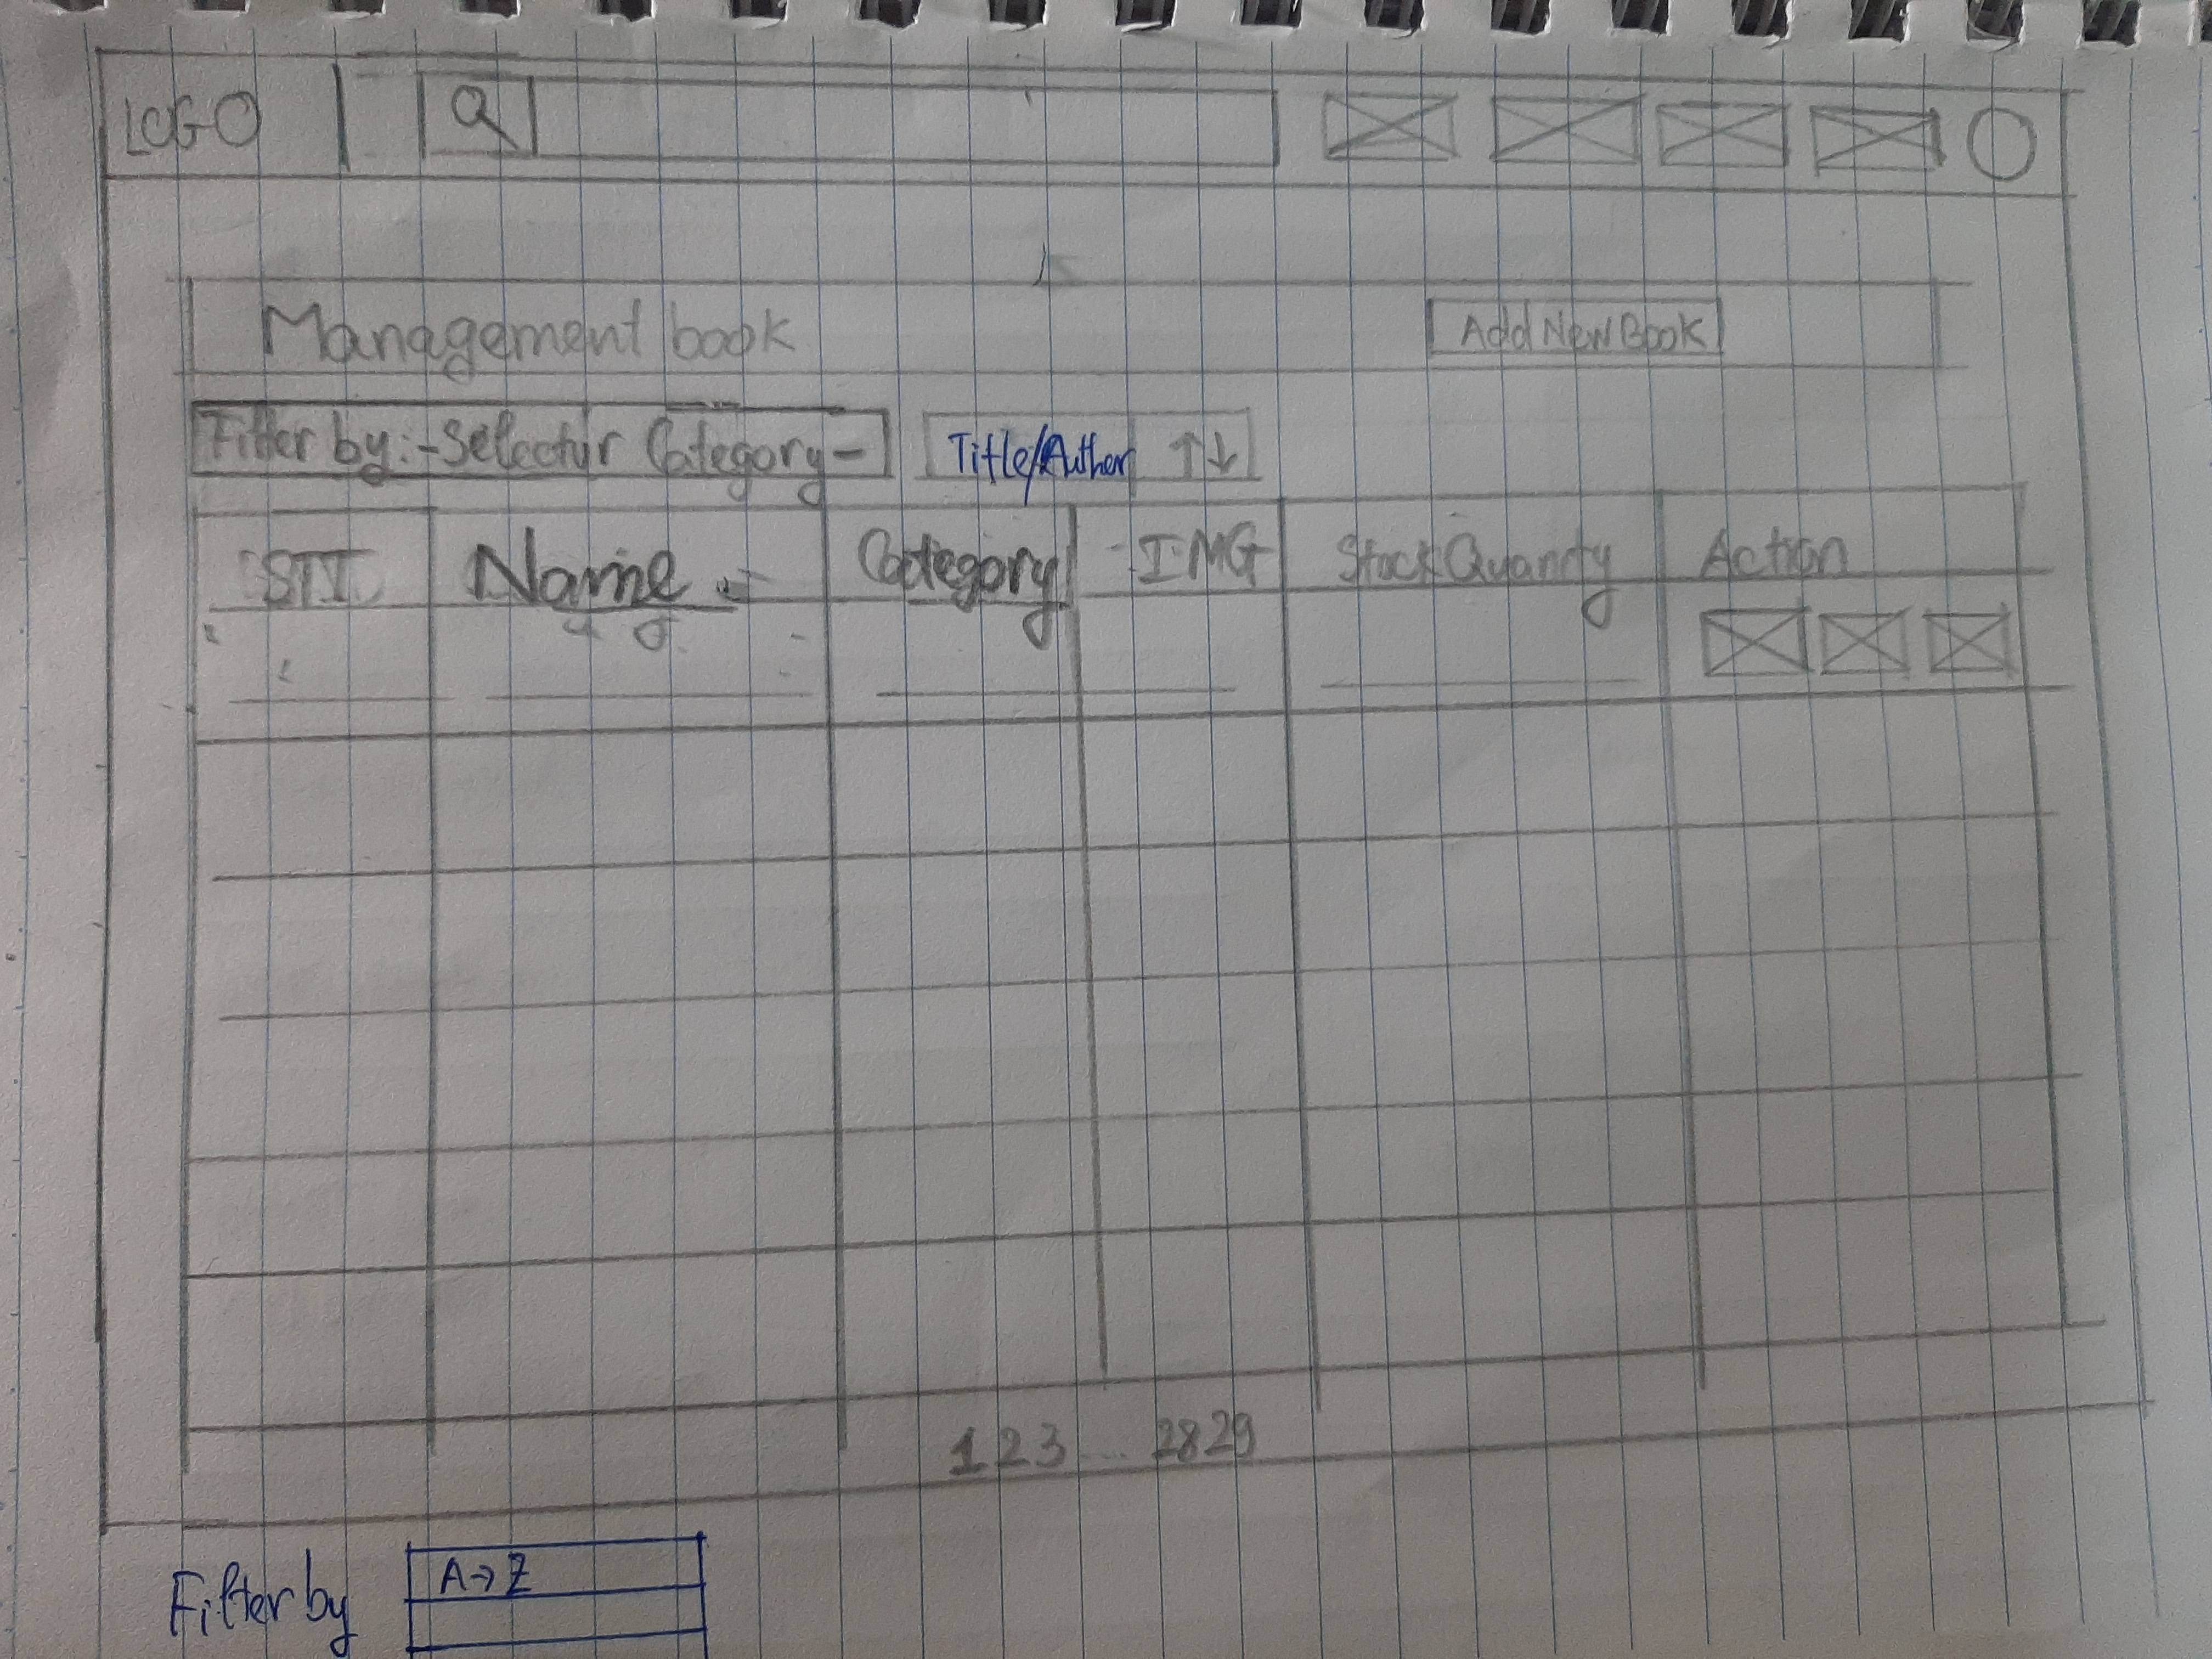 LOGO Q
Management book Add New Book
Filter by: -Selectur Category- Title/Auther ↑↓
STT Name Category IMG Stock Quantty Action
1 2 3 ... 28 29
Filter by A→Z